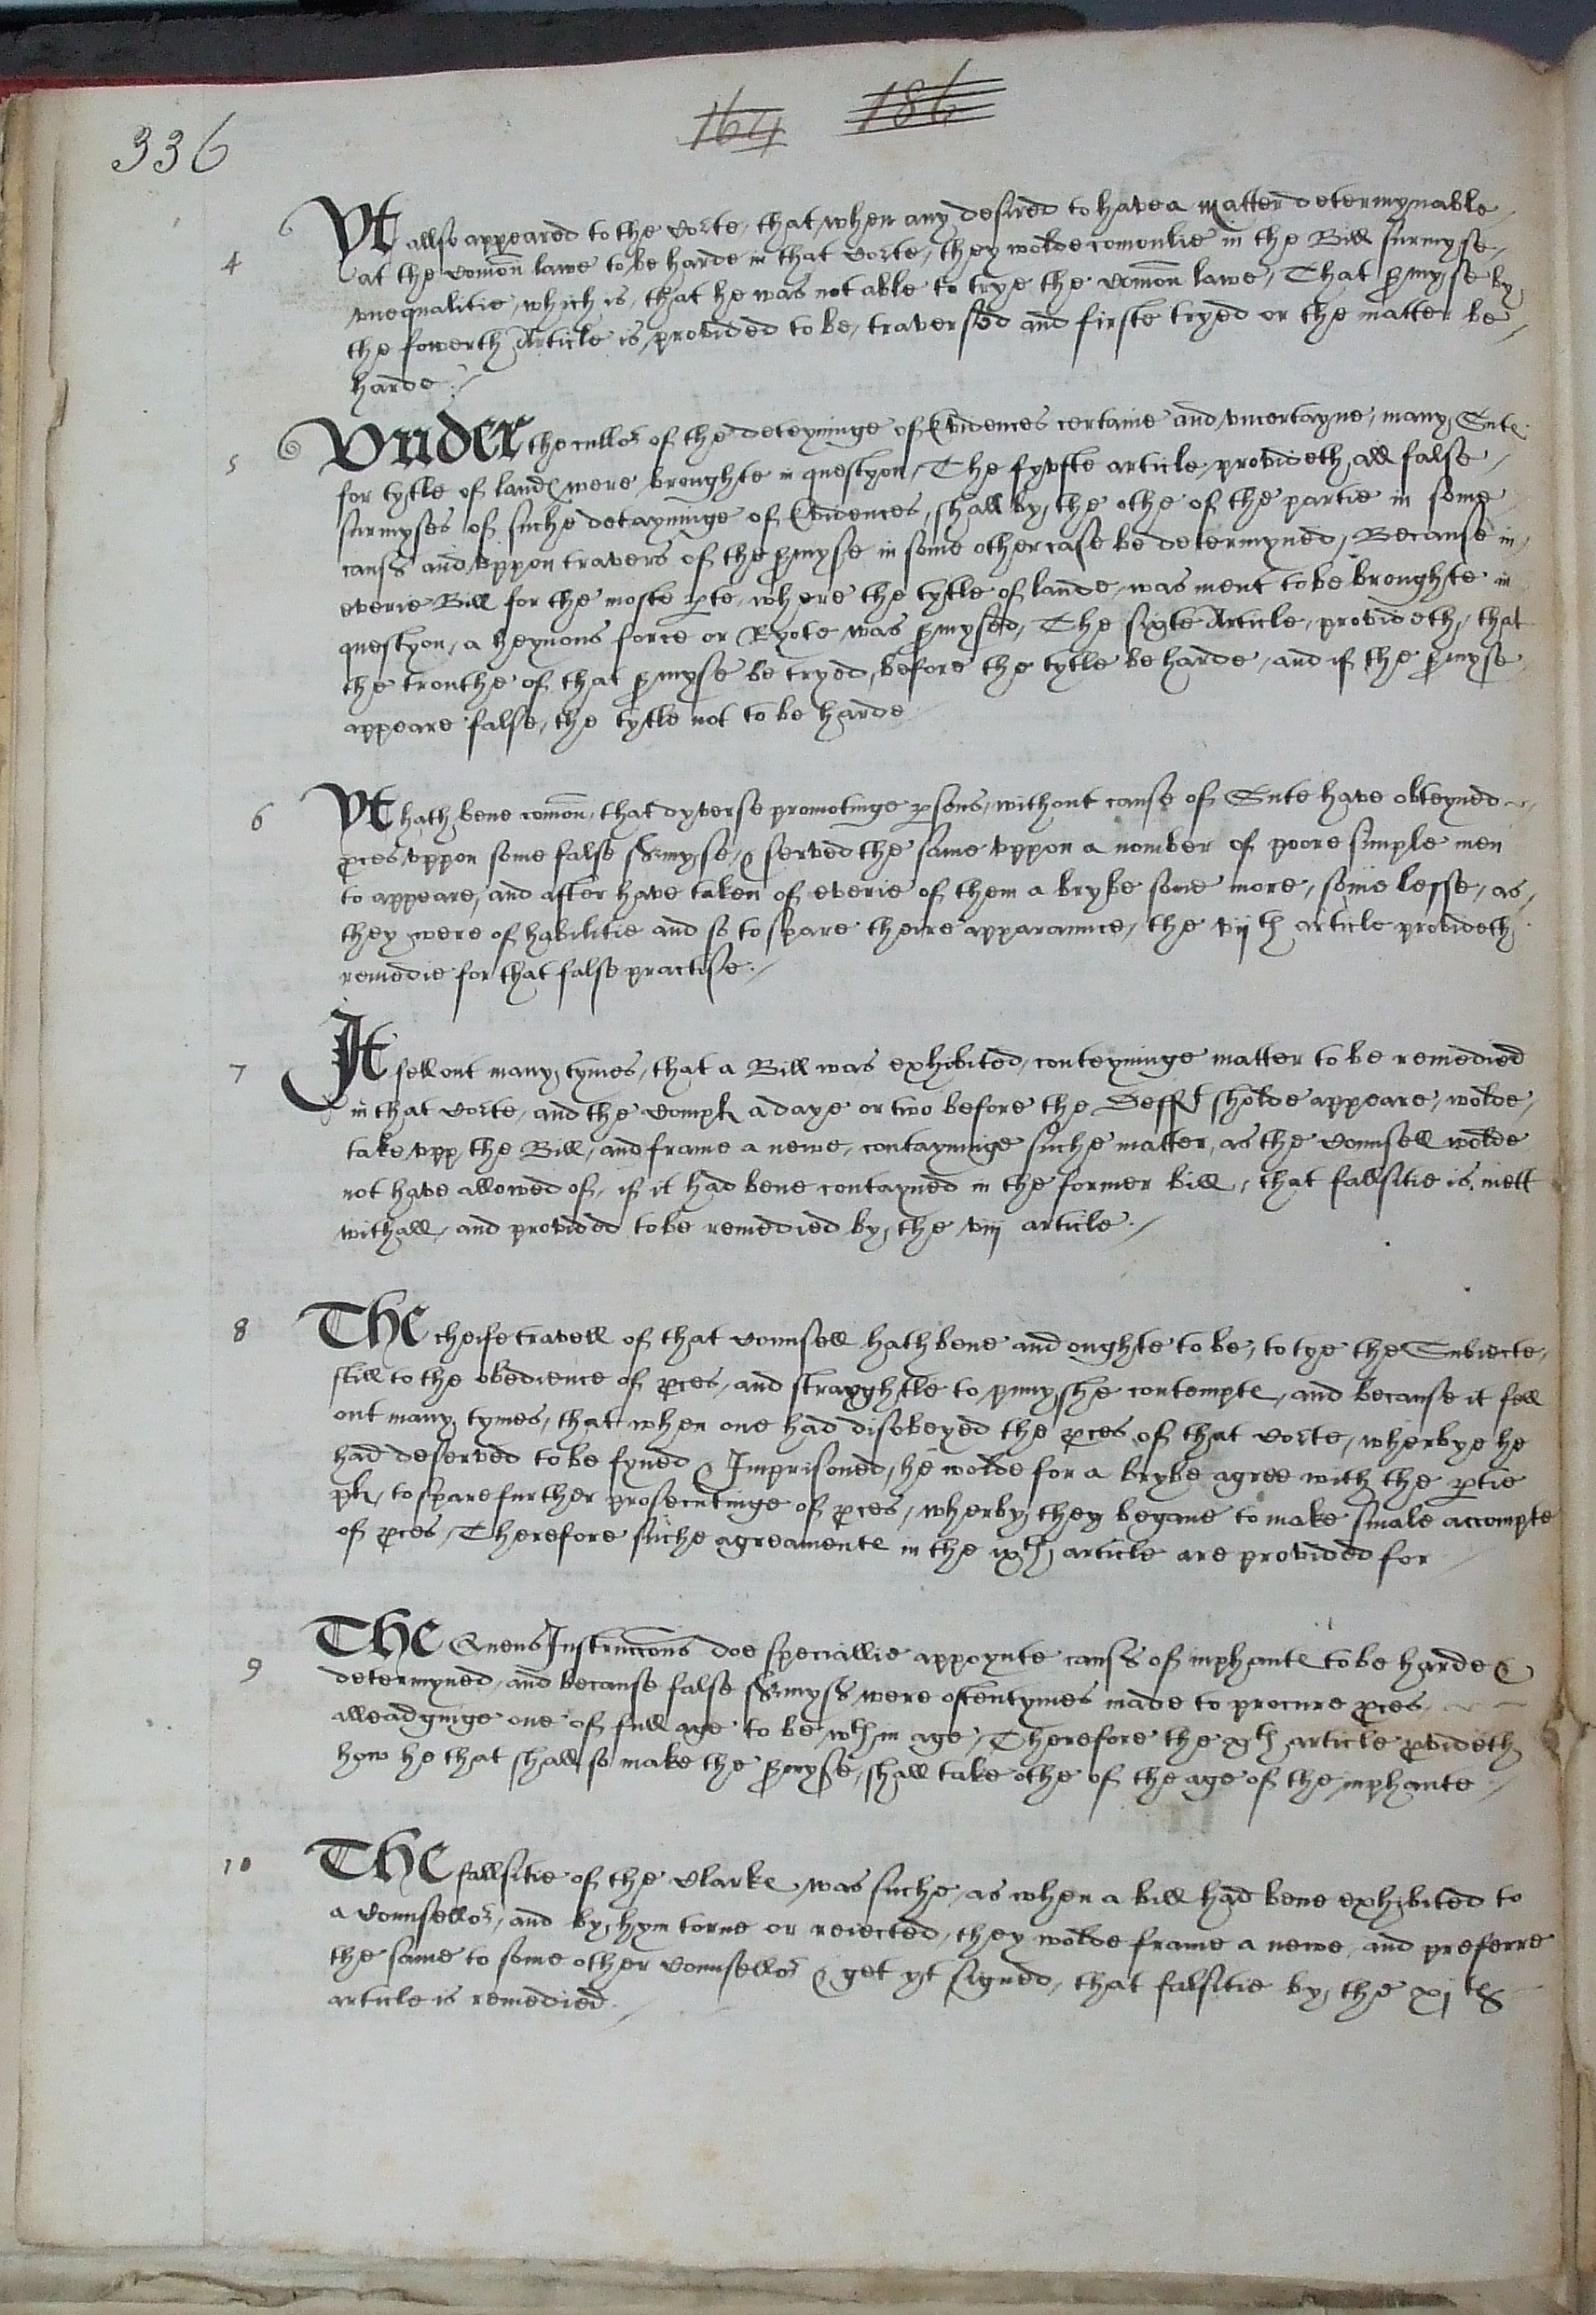 336
164 186
4
Yt allso appeared to the Corte, that when any desired to have a matter determynable
at the Comon lawe to be harde in that Corte, they wolde comonlie in the Bill surmyse,
vnequalitie, which is, that he was not able to trye the Comon lawe, That Surmyse by
the fowerth Article is provided to be, traversed and firste tryed or the matter be
harde./
5
Vnder the cullor of the deteyninge of Evidences certaine and vncertayne, many Sute
for tytle of lande were broughte in questyon, The fyveste article provideth, all false
surmyses of suche detayninge of Evidences, shall by the othe of the partie in some
causs and vppon travers of the Surmyse in some other case be determyned, Because in
everie Bill for the moste parte, where the tytle of lande, was ment to be broughte in
questyon, a heynous force or Ryote was Surmysed, The sixte Article, provideth, that
the trouthe of that Surmyse be tryed, before the tytle be harde, and if the Surmyse
appeare false, the tytle not to be harde
6
Yt hath bene comon, that dyverse promotinge persons, without cause of Sute have obteyned
proces, vppon some false Surmyse, & served the same vppon a nomber of poore simple men
to appeare, and after have taken of everie of them a brybe some more, some lesse, as
they were of habilitie and so to spare theire apparaunce, the vijth article provideth
remedie for that false practise./
7
It fell out many tymes, that a Bill was exhibited, conteyninge matter to be remedied
in that Corte, and the Compl a daye or two before the Defft sholde appeare, wolde,
take vpp the Bill, and frame a newe, contayninge suche matter, as the Counsell wolde
not have allowed of, if it had bene contayned in the former bill, that fallsitie is mett
withall, and provided to be remedied by, the viij article./
8
The cheife travell of that Counsell hath bene and oughte to be, to tye the Subiecte,
still to the obedience of proces, and strayghtle to punyshe contempte, and because it fell
out many tymes, that when one had disobeyed the proces of that Corte, wherbye he
had deserved to be fyned & Imprisoned, he wolde for a brybe agree with the partie
pl, to spare further prosecutinge of proces, wherby they begane to make smale accompte
of proces, Therefore suche agreamente in the ixth article are provided for
9
The Quens Instruccons doe speciallie appoynte causs of inphante to be harde &
determyned, and because false Surmyss were oftentymes made to procure proces
alleadginge one of full age to be wthin age, Therefore the xth article provideth
how he that shall so make the Surmyse, shall take othe of the age of the inphante
10
The fallsitie of the Clarke was suche, as when a bill had bene exhibited to
a Counsellor, and by hym torne or reiected, they wolde frame a newe, and preferre
the same to some other Counsellor & get yt signed, that falsitie by, the xjth
article is remedied.